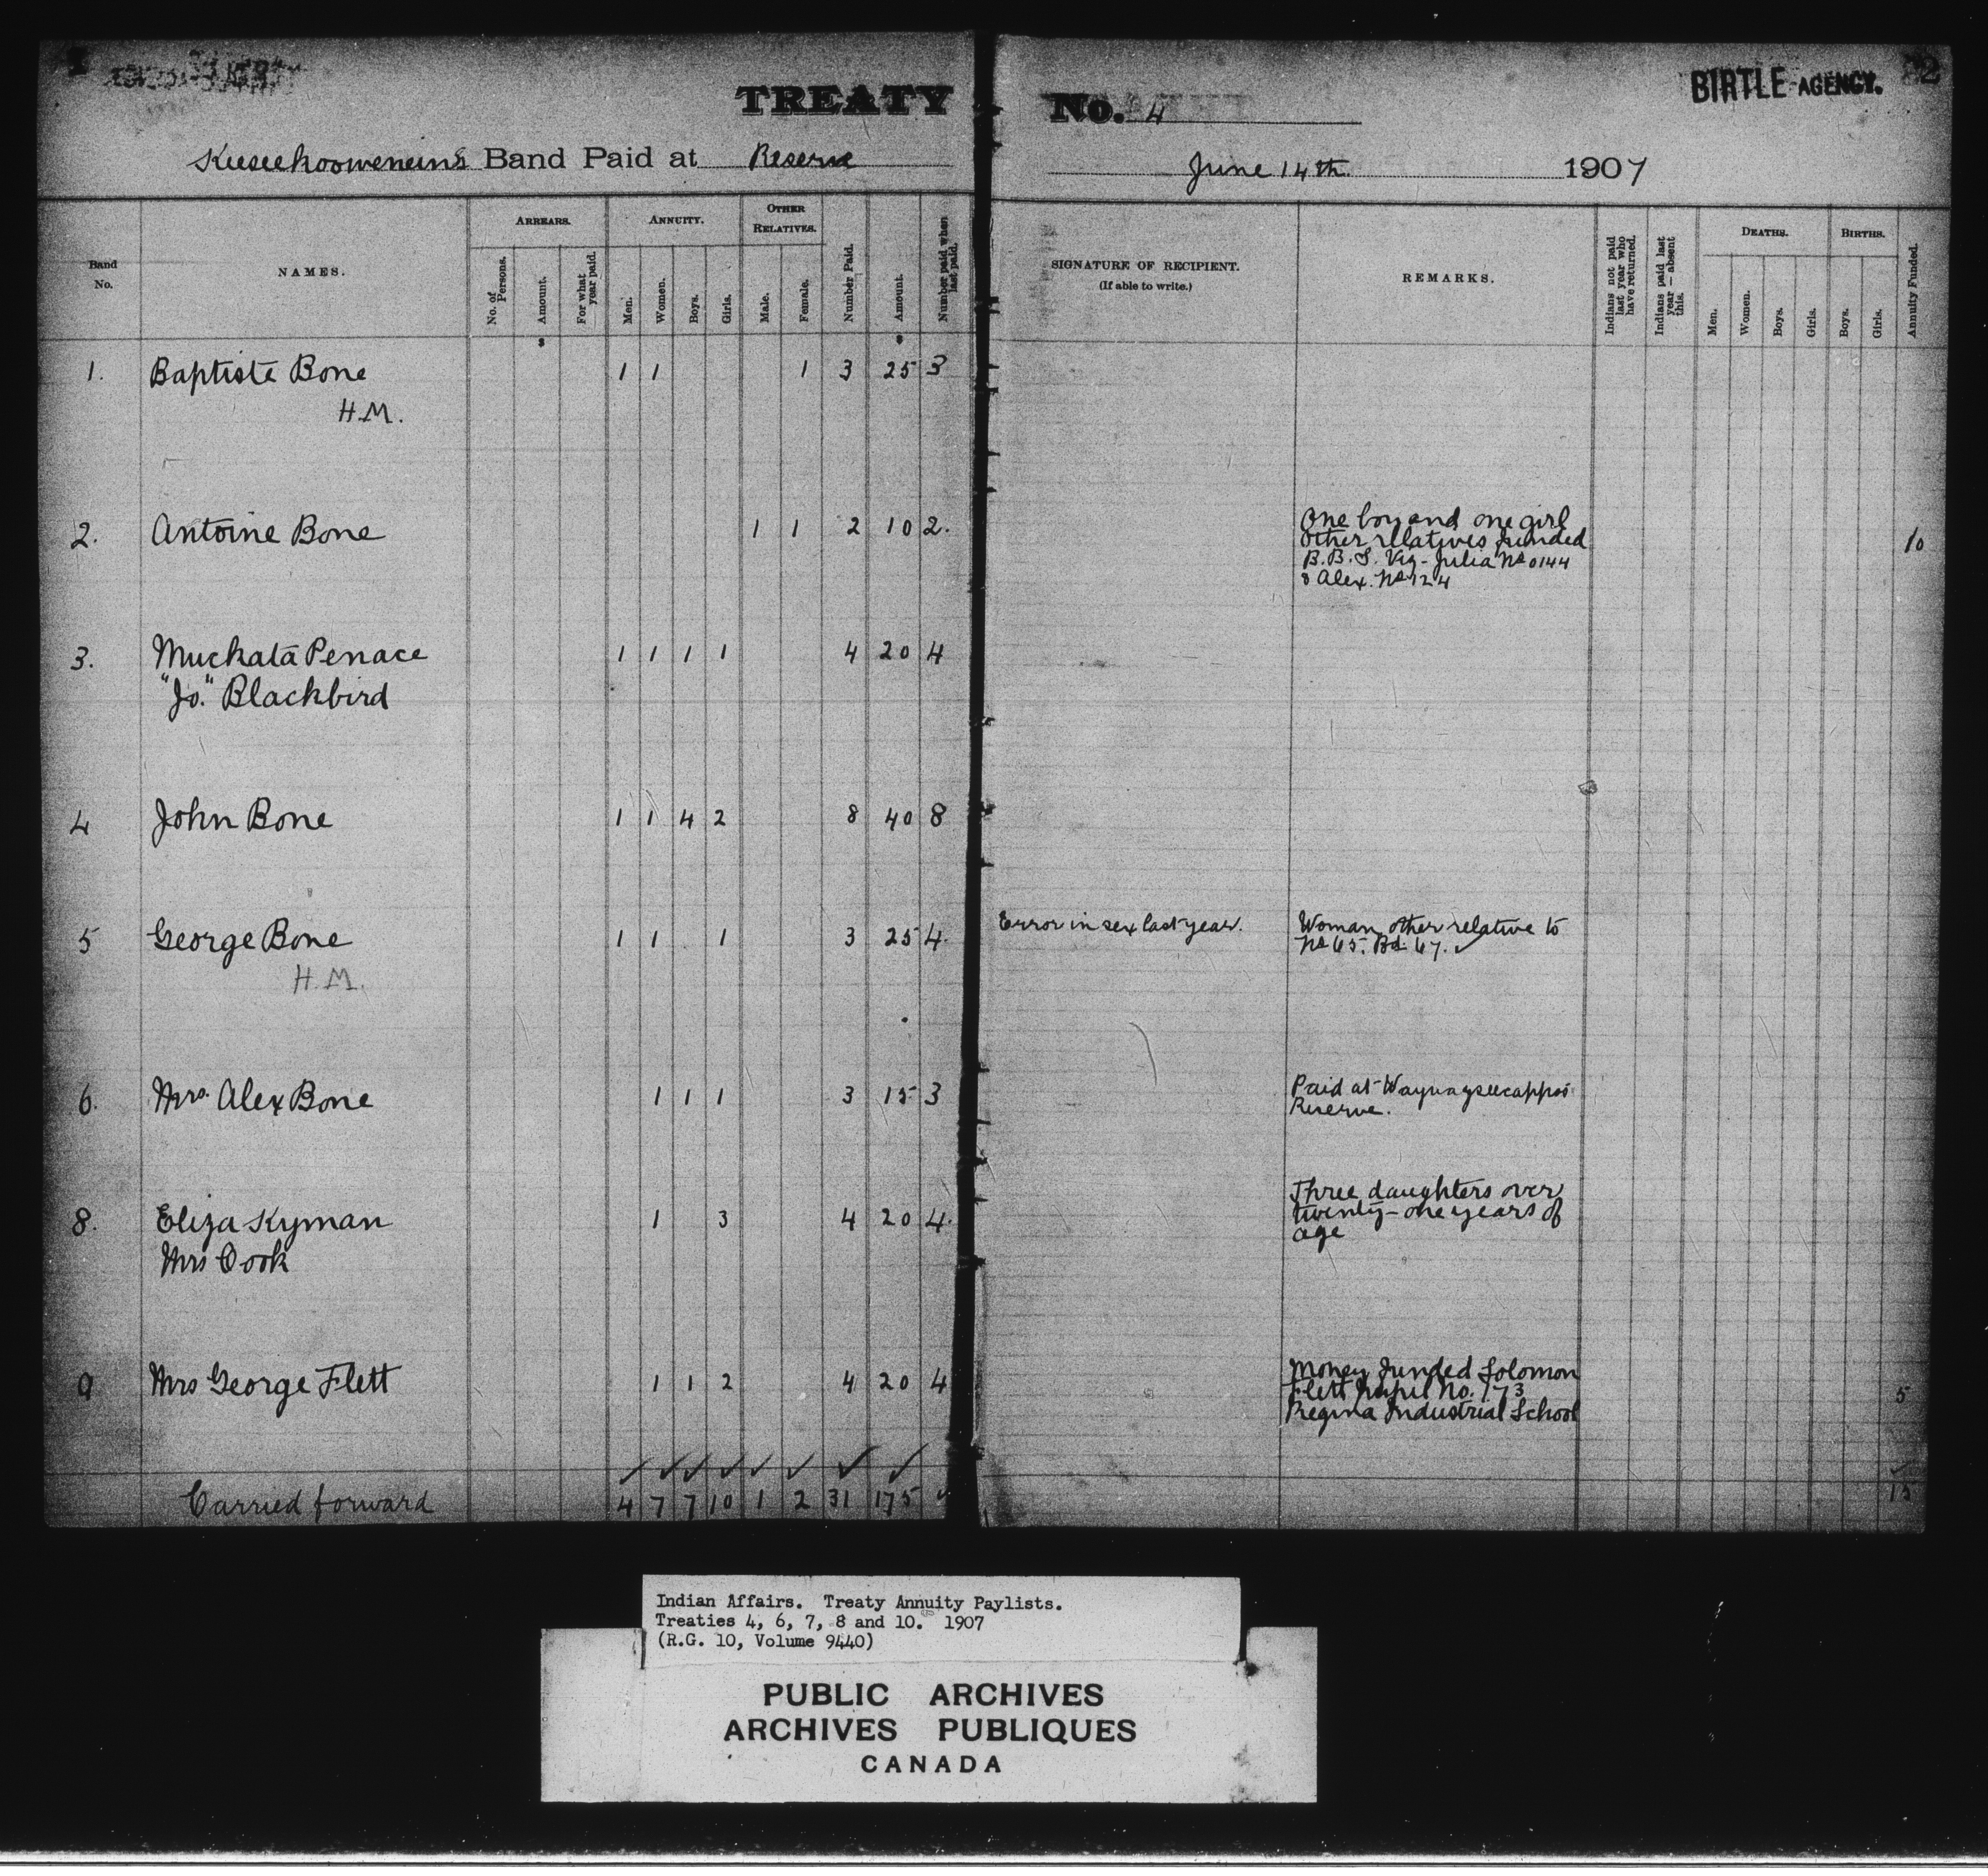 TREATY No. 4
BIRTLE AGENCY. 2
Keeseekoowenins Band Paid at Reserve June 14th 1907
Band No.
NAMES.
ARREARS.
No. of Persons.
Amount.
For what year paid.
ANNUITY.
Men.
Women.
Boys.
Girls.
OTHER RELATIVES.
Male.
Female.
Number Paid.
Amount.
Number paid when last paid.
SIGNATURE OF RECIPIENT.
(If able to write.)
REMARKS.
Indians not paid last year who have returned.
Indians paid last year — absent this.
DEATHS.
Men.
Women.
Boys.
Girls.
BIRTHS.
Boys.
Girls.
Annuity Funded.
$ $
1. Baptiste Bone 1 1 1 3 25 3
H.M.
2. Antoine Bone 1 1 2 10 2. 10
One boy and one girl
other relatives funded
B.B.S. Viz- Julia No 0144
& Alex. No 124
3. Muckata Penace 1 1 1 1 4 20 4
"Jo." Blackbird
4 John Bone 1 1 4 2 8 40 8
5 George Bone 1 1 1 3 25 4.
H.M.
Error in sex last year.
Woman other relative to
No 65. Bd. 67. ✓
6. Mrs. Alex Bone 1 1 1 3 15 3
Paid at Waywayseecappos
Reserve.
8. Eliza Kyman 1 3 4 20 4.
Mrs Cook
Three daughters over
twenty-one years of
age
9 Mrs George Flett 1 1 2 4 20 4 5
Money funded Solomon
Flett pupil No. 173
Regina Industrial School
✓ ✓ ✓ ✓ ✓ ✓ ✓ ✓ ✓
Carried forward 4 7 7 10 1 2 31 175 ✓ 15
Indian Affairs. Treaty Annuity Paylists.
Treaties 4, 6, 7, 8 and 10. 1907
(R.G. 10, Volume 9440)
PUBLIC ARCHIVES
ARCHIVES PUBLIQUES
CANADA